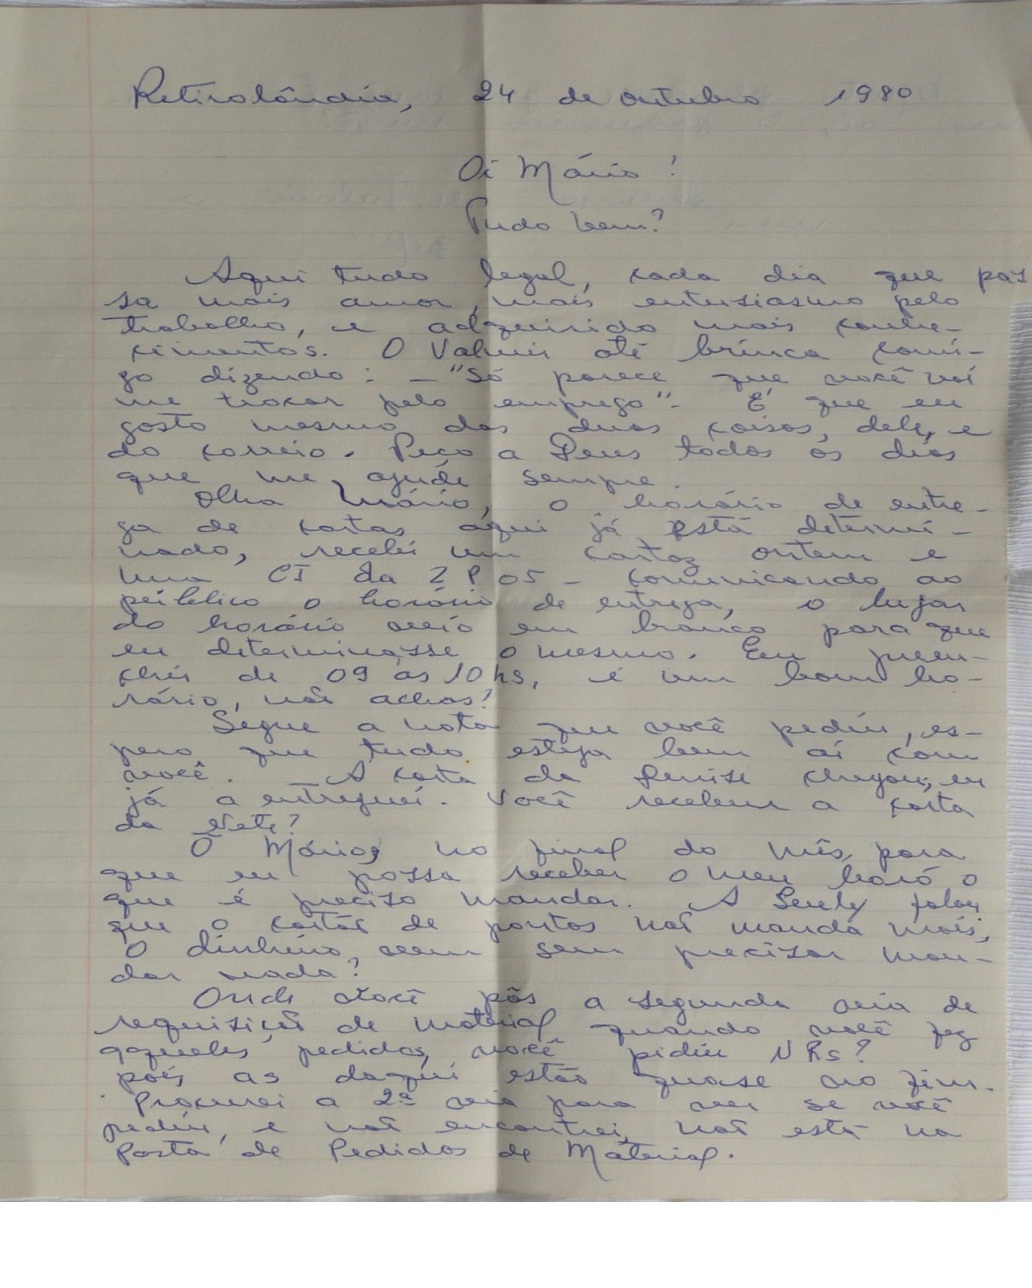 Retirolândia, 24 de outubro 1980
Oi Mário!
Tudo bem?
Aqui tudo legal, cada dia que pas
sa mais amor, mais entusiasmo pelo
trabalho, e adquirido mais conhe-
cimentos. O Valmir até brinca comi-
go dizendo: - "Só parece que você vai
me trocar pelo emprego". É que eu
gosto mesmo das duas coisas, dele, e
do correio. Peço a Deus todos os dias
que me ajude sempre.
Olha Mário, o horário de entre-
ga de cartas aqui já está determi-
nado, recebi um cartaz ontem e
uma CI da ZP 05 - comunicando ao
público o horário de entrega, o lugar
do horário veio em branco para que
eu determinasse o mesmo. Eu preen-
chi de 09 às 10 hs, é um bom ho-
rário, não achas?
Segue a nota que você pediu, es-
pero que tudo esteja bem aí com
você. _ A carta da Denise chegou, eu
já a entreguei. Você recebeu a carta
da Nete?
Ô Mário, no final do mês, para
que eu possa receber o meu boró o
que é preciso mandar. A falou
que o cartão de pontos não manda mais,
o dinheiro vem sem precisar man-
dar nada?
Onde você pôs a segunda via de
requisição de material quando você fez
aqueles pedidos, você pediu NRs?
pois as daqui estão quase no fim.
Procurei a 2ª via para ver se você
pediu, e não encontrei, não está na
Pasta de Pedidos de Material.